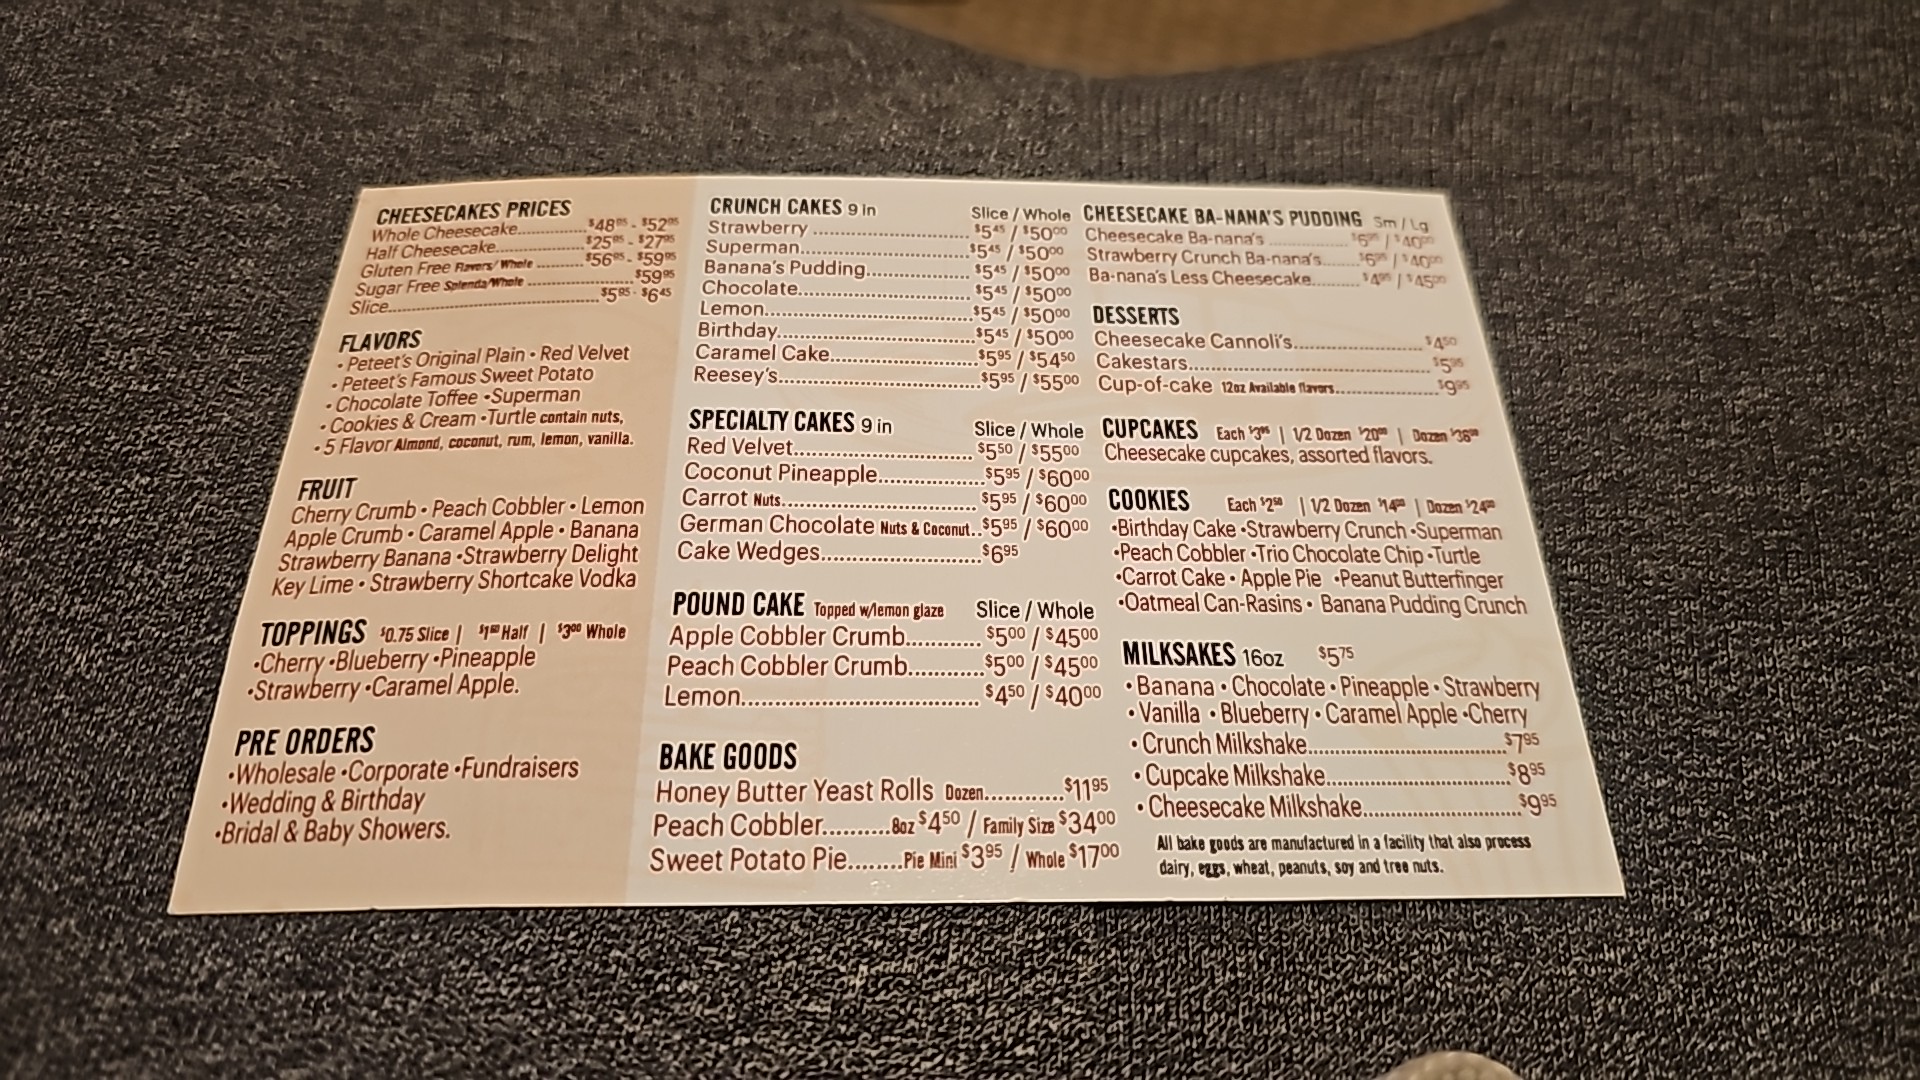 CHEESECAKES PRICES
Whole Cheesecake............$48⁹⁵ - $52⁹⁵
Half Cheesecake............$25⁹⁵ - $27⁹⁵
Gluten Free Flavors/Whole............$56⁹⁵ - $59⁹⁵
Sugar Free Splenda/Whole............$59⁹⁵
Slice............$5⁹⁵ - $6⁴⁵
FLAVORS
• Peteet's Original Plain • Red Velvet
• Peteet's Famous Sweet Potato
• Chocolate Toffee •Superman
• Cookies & Cream •Turtle contain nuts,
• 5 Flavor Almond, coconut, rum, lemon, vanilla.
FRUIT
Cherry Crumb • Peach Cobbler • Lemon
Apple Crumb • Caramel Apple • Banana
Strawberry Banana •Strawberry Delight
Key Lime • Strawberry Shortcake Vodka
TOPPINGS $0.75 Slice | $1⁵⁰ Half | $3⁰⁰ Whole
•Cherry •Blueberry •Pineapple
•Strawberry •Caramel Apple.
PRE ORDERS
•Wholesale •Corporate •Fundraisers
•Wedding & Birthday
•Bridal & Baby Showers.
CRUNCH CAKES 9 in Slice / Whole
Strawberry............$5⁴⁵ / $50⁰⁰
Superman............$5⁴⁵ / $50⁰⁰
Banana's Pudding............$5⁴⁵ / $50⁰⁰
Chocolate............$5⁴⁵ / $50⁰⁰
Lemon............$5⁴⁵ / $50⁰⁰
Birthday............$5⁴⁵ / $50⁰⁰
Caramel Cake............$5⁹⁵ / $54⁵⁰
Reesey's............$5⁹⁵ / $55⁰⁰
SPECIALTY CAKES 9 in Slice / Whole
Red Velvet............$5⁵⁰ / $55⁰⁰
Coconut Pineapple............$5⁹⁵ / $60⁰⁰
Carrot Nuts............$5⁹⁵ / $60⁰⁰
German Chocolate Nuts & Coconut..$5⁹⁵ / $60⁰⁰
Cake Wedges............$6⁹⁵
POUND CAKE Topped w/lemon glaze Slice / Whole
Apple Cobbler Crumb............$5⁰⁰ / $45⁰⁰
Peach Cobbler Crumb............$5⁰⁰ / $45⁰⁰
Lemon............$4⁵⁰ / $40⁰⁰
BAKE GOODS
Honey Butter Yeast Rolls Dozen............$11⁹⁵
Peach Cobbler..........8oz $4⁵⁰ / Family Size $34⁰⁰
Sweet Potato Pie........Pie Mini $3⁹⁵ / Whole $17⁰⁰
CHEESECAKE BA-NANA'S PUDDING Sm / Lg
Cheesecake Ba-nana's............$6⁹⁵ / $40⁰⁰
Strawberry Crunch Ba-nana's......$6⁹⁵ / $40⁰⁰
Ba-nana's Less Cheesecake........$4⁹⁵ / $45⁰⁰
DESSERTS
Cheesecake Cannoli's............$4⁵⁰
Cakestars............$5⁹⁵
Cup-of-cake 12oz Available flavors............$9⁹⁵
CUPCAKES Each $3⁹⁵ | 1/2 Dozen $20⁰⁰ | Dozen
Cheesecake cupcakes, assorted flavors.
COOKIES Each $2⁵⁰ | 1/2 Dozen | Dozen $24⁰⁰
•Birthday Cake •Strawberry Crunch •Superman
•Peach Cobbler •Trio Chocolate Chip •Turtle
•Carrot Cake • Apple Pie •Peanut Butterfinger
•Oatmeal Can-Rasins • Banana Pudding Crunch
MILKSAKES 16oz $5⁷⁵
• Banana • Chocolate • Pineapple • Strawberry
• Vanilla • Blueberry • Caramel Apple •Cherry
• Crunch Milkshake............$7⁹⁵
• Cupcake Milkshake............$8⁹⁵
• Cheesecake Milkshake............$9⁹⁵
All bake goods are manufactured in a facility that also process
dairy, eggs, wheat, peanuts, soy and tree nuts.